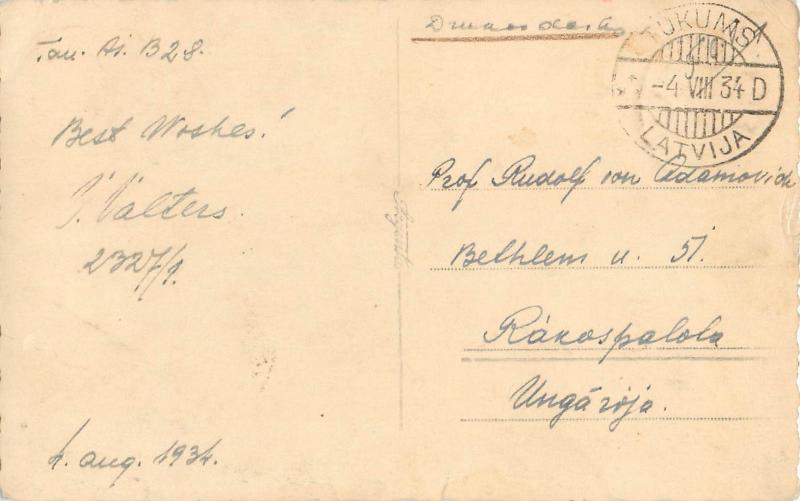 Tau. Ai. B 28.
Best Woshes!
J. Valters.
2327/1.
4. aug. 1934.
TUKUMS
-4 VIII 34 D
LATVIJA
Prof Rudolf von Adamovich
Bethlem u. 51.
Rákospalola
Ungārija.